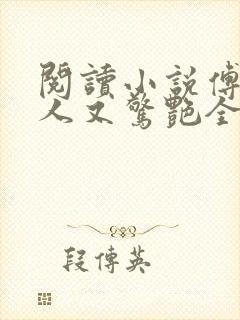 閱讀小說傅
人又驚艷全
段傳英